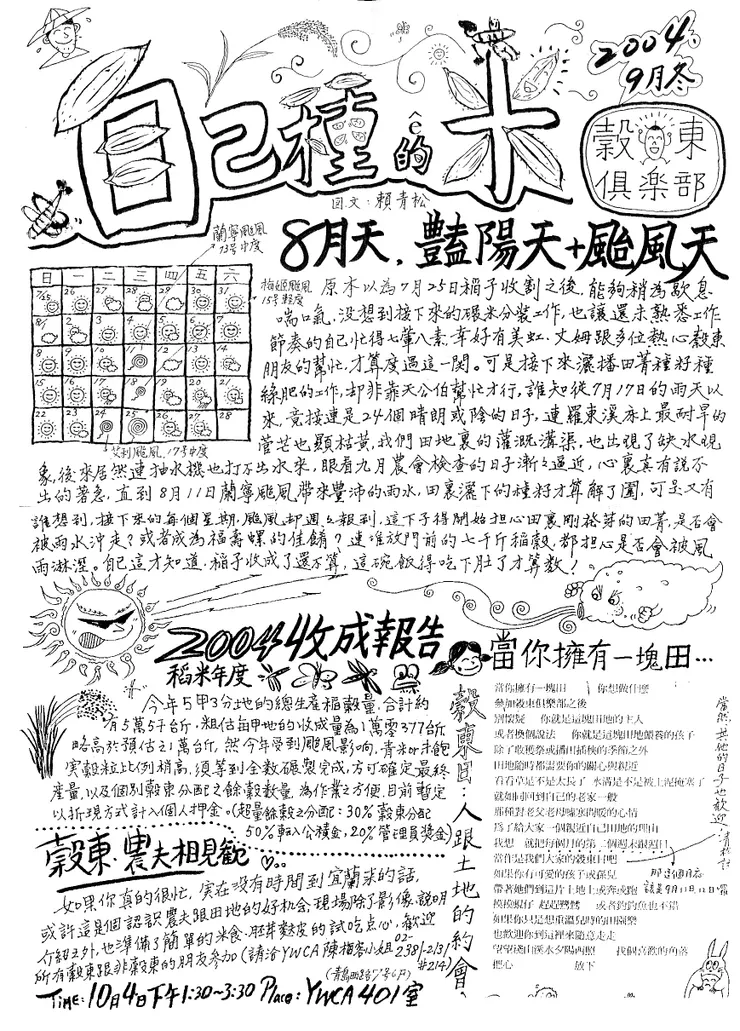 自己種的米
ê
2004
9月冬
穀東
俱楽部
圖文：賴青松
8月天，豔陽天+颱風天
蘭寧颱風
13號中度
梅姬颱風
15號輕度
艾利颱風，17號中度
日 一 二 三 四 五 六
7/25 26 27 28 29 30 31
8/1 2 3 4 5 6 7
8 9 10 11 12 13 14
15 16 17 18 19 20 21
22 23 24 25 26 27 28
原本以為7月25日稻子收割之後，能夠稍為歇息
喘口氣，沒想到接下來的碾米分裝工作，也讓還未熟悉工作
節奏的自己忙得七葷八素，幸好有美虹、丈姆跟多位熱心穀東
朋友的幫忙，才算度過這一關。可是接下來灑播田菁種籽種
綠肥的工作，却非靠天公伯幫忙才行，誰知從7月17日的雨天以
來，竟接連是24個晴朗或陰的日子，連羅東溪床上最耐旱的
菅芒也顯枯黃，我們田地裏的灌溉溝渠，也出現了缺水現
象，後來居然連抽水機也打不出水來，眼看九月農會檢查的日子漸漸逼近，心裏真有說不
出的著急，直到8月11日蘭寧颱風帶來豐沛的雨水，田裏灑下的種籽才算解了圍，可是又有
誰想到，接下來的每個星期，颱風却週週報到，這下子得開始担心田裏剛發芽的田菁，是否會
被雨水沖走？或者成為福壽螺的佳餚？連堆放門前的七千斤稻穀，都担心是否會被風
雨淋溼。自己這才知道，稻子收成了還不算，這碗飯得吃下肚了才算數！
2004收成報告
稻米年度
今年5甲3分地的總生產稻穀量，合計約
有5萬5千台斤，粗估每甲地的收成量為1萬零377台斤
略高於預估之1萬台斤，然今年受到颱風影响，青米or未飽
実穀粒比例稍高，須等到全數碾製完成，方可確定最終
產量，以及個別穀東分配之餘穀數量，為作業之方便，目前暫定
以折現方式計入個人押金。(超量餘穀之分配：30%穀東分配
50%転入公積金，20%管理員獎金)
穀東 農夫相見歡
如果你真的很忙，実在沒有時間到宜蘭來的話，
或許這是個認識農夫跟田地的好机会，現場除了影像、說明
介紹之外，也準備了簡單的米食、胚芽麩皮的試吃点心，歡迎
所有穀東跟非穀東的朋友參加(請洽YWCA陳楷容小姐 02-
2381-2131
#214)
(青島西路7号6F)
TIME: 10月4日下午1:30~3:30 Place: YWCA 401室
當你擁有一塊田…
穀東日：人跟土地的約會，
當你擁有一塊田 你想做什麼
參加穀東俱樂部之後
別懷疑 你就是這塊田地的主人
或者換個說法 你就是這塊田地餵養的孩子
除了收穫祭或播田插秧的季節之外
田地臨時都需要你的關心與親近
看看草是不是太長了 水溝是不是被上泥掩塞了
就如同回到自己的老家一般
那種對老父老母噓寒問暖的心情
為了給大家一個親近自己田地的理由
我想 就把每個月的第二個週末跟週日
當作是我們大家的穀東日吧
如果你有可愛的孩子或孫兒
帶著她們到這片土地上或奔或跑
摸摸蜆仔 趕趕鷺鷥 或者釣釣魚也不錯
如果你只是想重溫兒時的田園樂
也歡迎你到這裡來隨意走走
望望淺山溪水夕陽西照 找個喜歡的角落
把心 放下
那這個月应
該是9月11,12日囉
當然，其他的日子也歡迎！